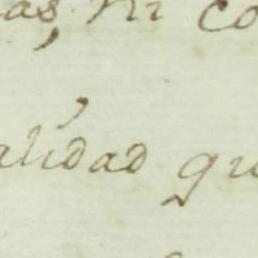 as, ni co
alidad qu